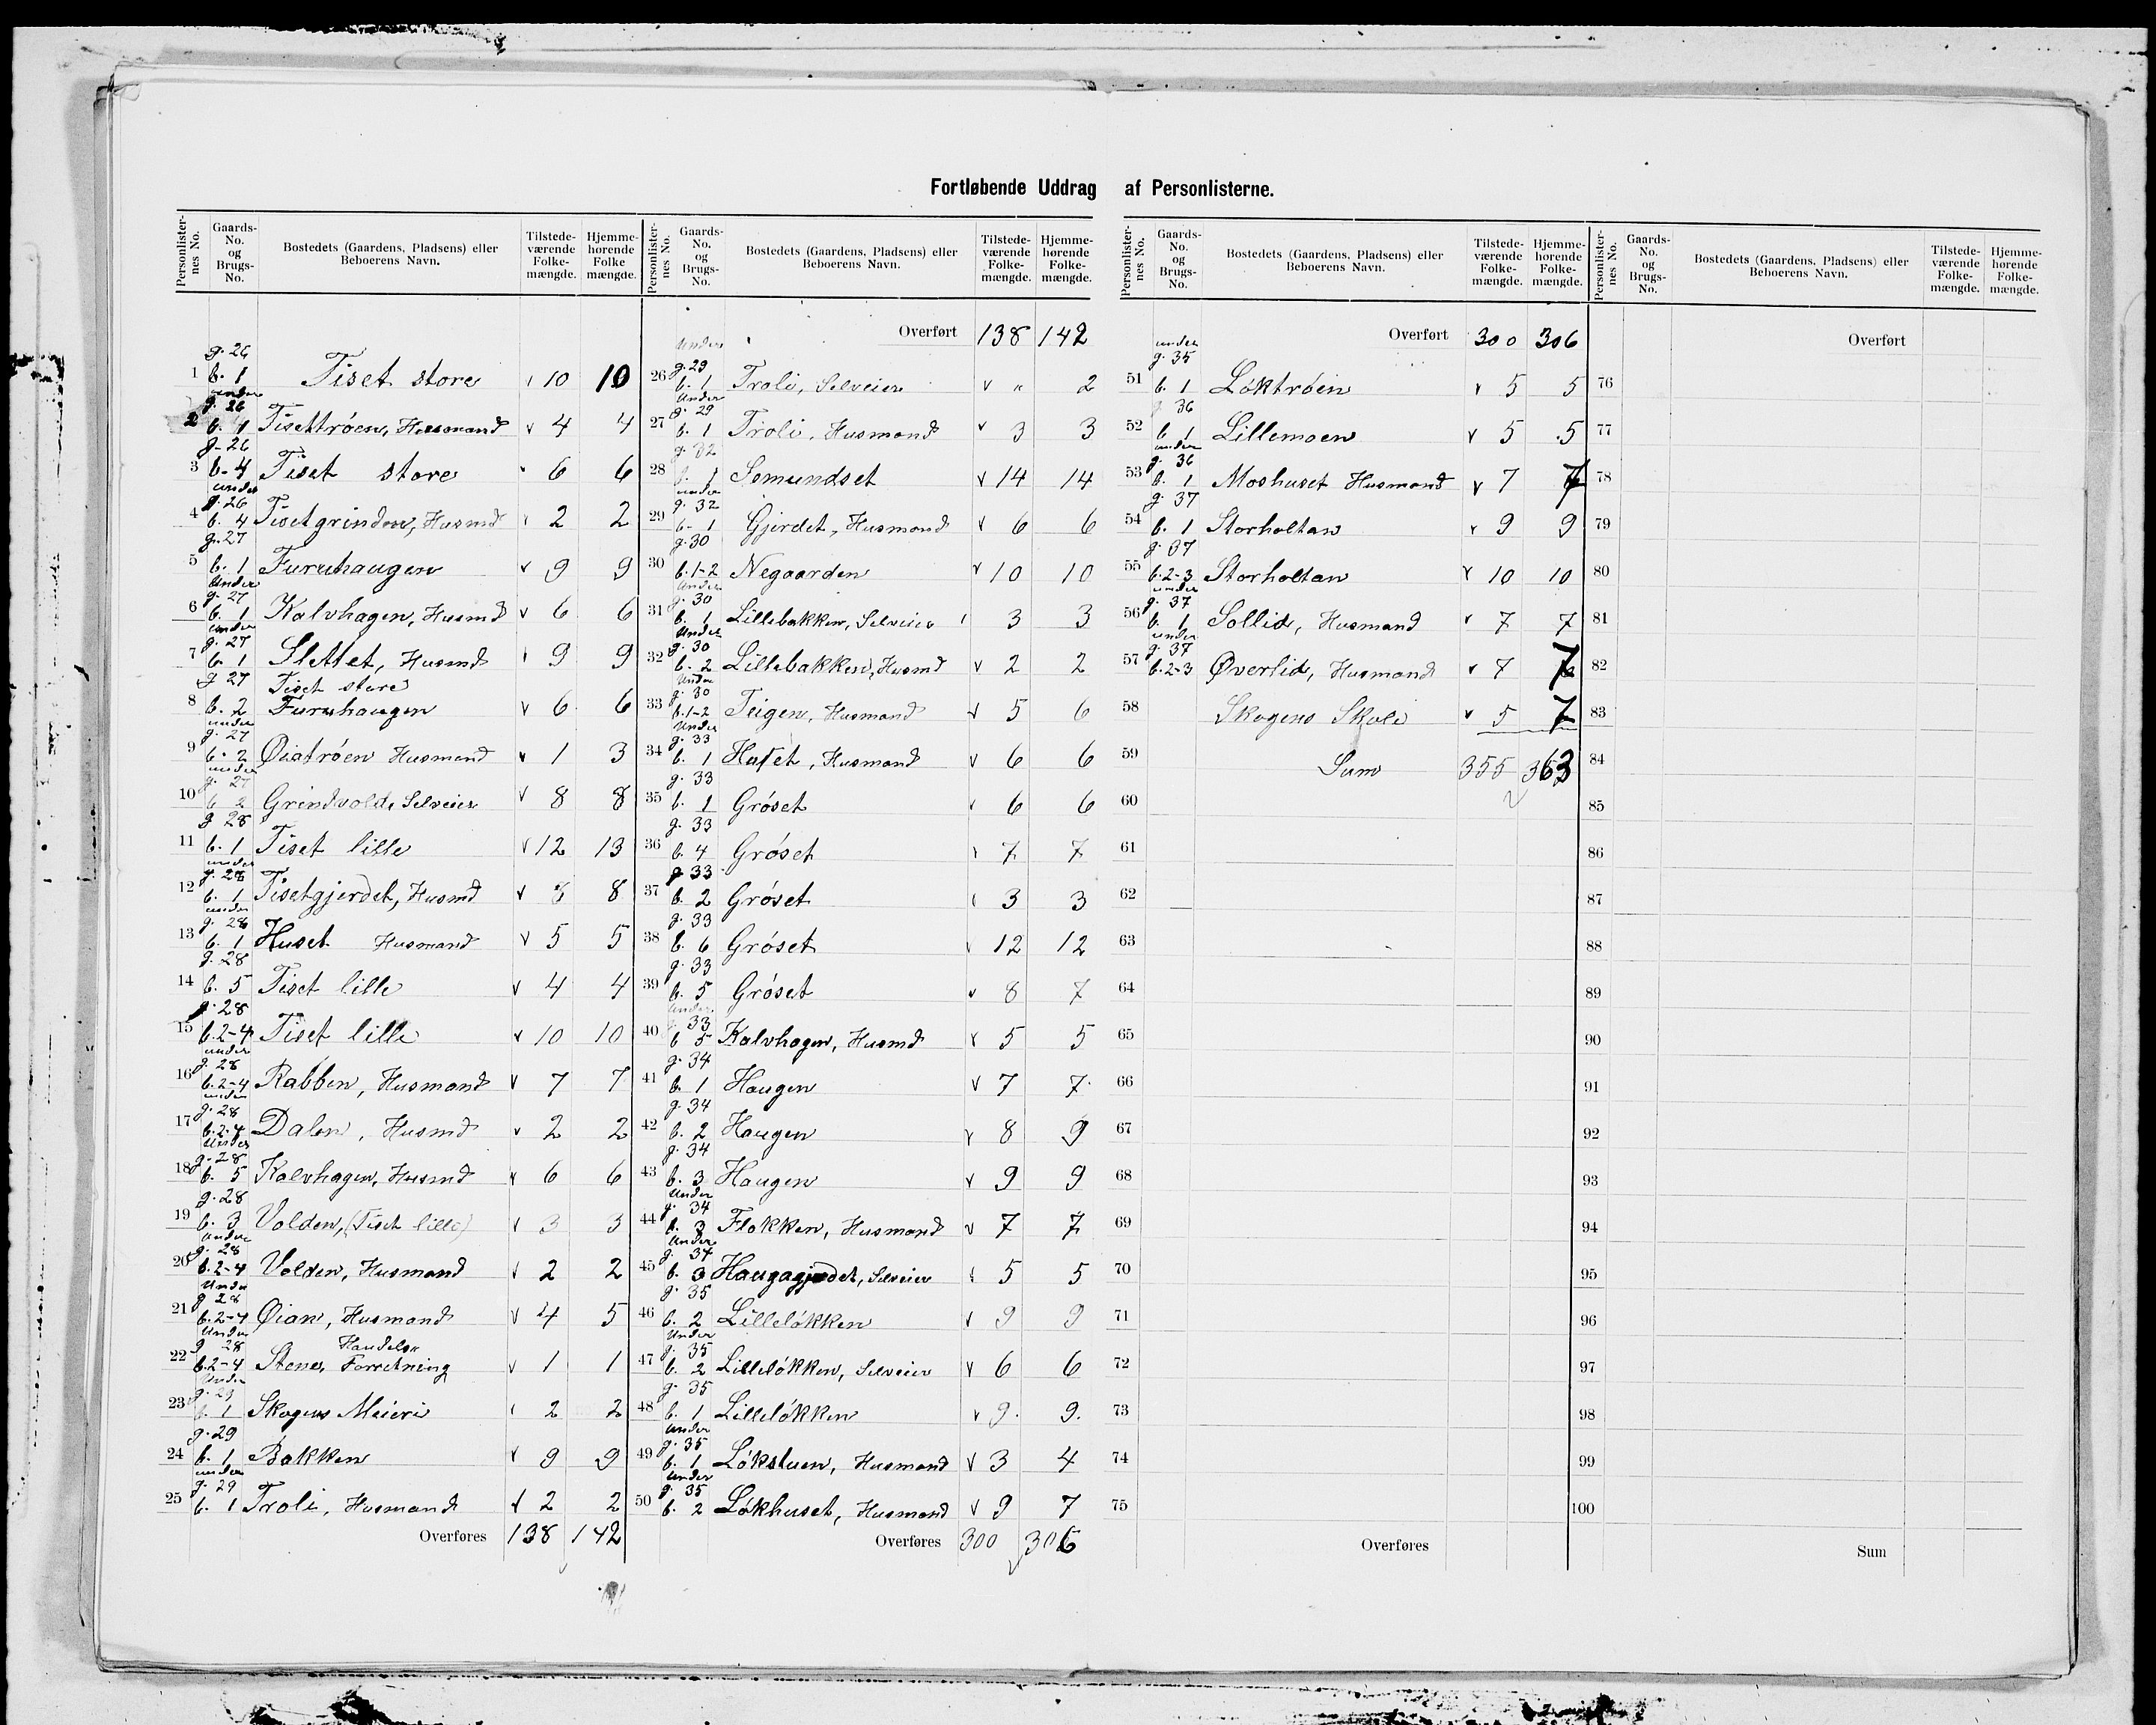 Fortløbende Uddrag af Personlisterne.
Personlister-nes No. | Gaards-No. og Brugs-No. | Bostedets (Gaardens, Pladsens) eller Beboerens Navn. | Tilstede-værende Folke-mængde. | Hjemme-hørende Folke mængde.
1 g. 26 b. 1 Tiset store 10 10
2 under g. 26 b. 1 Tisettrøen, Husmand 4 4
3 g. 26 b. 4 Tiset store 6 6
4 under g. 26 b. 4 Tisetgrinden, Husmd 2 2
5 g. 27 b. 1 Furuhaugen 9 9
6 Under g. 27 b. 1 Kalvhagen, Husmd 6 6
7 under g. 27 b. 1 Slettet, Husmd 9 9
8 g. 27 b. 2 Tiset store Furuhaugen 6 6
9 under g. 27 b. 2 Øiatrøen Husmand 1 3
10 under g. 27 b. 2 Grindvold, Selveier 8 8
11 g. 28 b. 1 Tiset lille 12 13
12 under g. 28 b. 1 Tisetgjerdet, Husmd 8 8
13 under g. 28 b. 1 Huset Husmand 5 5
14 g. 28 b. 5 Tiset lille 4 4
15 g. 28 b. 2-4 Tiset lille 10 10
16 under g. 28 b. 2-4 Rabben, Husmand 7 7
17 under g. 28 b. 2-4 Dalen, Husmd 2 2
18 Under g. 28 b. 5 Kalvhagen, Husmd 6 6
19 g. 28 b. 3 Volden, (Tiset lille) 3 3
20 Under g. 28 b. 2-4 Volden, Husmand 2 2
21 Under g. 28 b. 2-4 Øian, Husmand 4 5
22 Under g. 28 b. 2-4 Stenes Handels Forretning 1 1
23 Under g. 29 b. 1 Skogens Meieri 2 2
24 g. 29 b. 1 Bakken 9 9
25 under g. 29 b. 1 Troli, Husmand 2 2
Overføres 138 142
Personlister-nes No. | Gaards-No. og Brugs-No. | Bostedets (Gaardens, Pladsens) eller Beboerens Navn. | Tilstede-værende Folke-mængde. | Hjemme-hørende Folke-mængde.
Overført 138 142
26 Under g. 29 b. 1 Troli, Selveier " 2
27 Under g. 29 b. 1 Troli, Husmand 3 3
28 g. 32 b. 1 Semundset 14 14
29 under g. 32 b. 1 Gjerdet, Husmand 6 6
30 g. 30 b. 1-2 Negaarden 10 10
31 Under g. 30 b. 1 Lillebakken, Selveier 3 3
32 Under g. 30 b. 2 Lillebakken, Husmd 2 2
33 Under g. 30 b. 1-2 Teigen, Husmand 5 6
34 Under g. 33 b. 1 Huset, Husmand 6 6
35 g. 33 b. 1 Grøset 6 6
36 g. 33 b. 4 Grøset 7 7
37 g. 33 b. 2 Grøset 3 3
38 g. 33 b. 6 Grøset 12 12
39 g. 33 b. 5 Grøset 8 7
40 Under g. 33 b. 5 Kalvhagen, Husmd 5 5
41 g. 34 b. 1 Haugen 7 7
42 g. 34 b. 2 Haugen 8 9
43 g. 34 b. 3 Haugen 9 9
44 Under g. 34 b. 3 Flokken, Husmand 7 7
45 Under g. 34 b. 3 Haugagjerdet, Selveier 5 5
46 g. 35 b. 2 Lilleløkken 9 9
47 Under g. 35 b. 2 Lilleløkken, Selveier 6 6
48 g. 35 b. 1 Lilleløkken 9 9
49 Under g. 35 b. 1 Løkstuen, Husmand 3 4
50 Under g. 35 b. 2 Løkhuset, Husmand 9 7
Overføres 300 306
Personlister-nes No. | Gaards-No. og Brugs-No. | Bostedets (Gaardens, Pladsens) eller Beboerens Navn. | Tilstede-værende Folke-mængde. | Hjemme-hørende Folke-mængde.
Overført 300 306
51 under g. 35 b. 1 Løktrøen 5 5
52 g. 36 b. 1 Lillemoen 5 5
53 under g. 36 b. 1 Moshuset Husmand 7 7
54 g. 37 b. 1 Storholtan 9 9
55 g. 37 b. 2-3 Storholtan 10 10
56 under g. 37 b. 1 Sollid, Husmand 7 7
57 under g. 37 b. 2-3 Øverlid, Husmand 7 7
58 Skogens Skole 5 7
59 Sum 355 363
60
61
62
63
64
65
66
67
68
69
70
71
72
73
74
75
Overføres
Personlister-nes No. | Gaards-No. og Brugs-No. | Bostedets (Gaardens, Pladsens) eller Beboerens Navn. | Tilstede-værende Folke-mængde. | Hjemme-hørende Folke-mængde.
Overført
76
77
78
79
80
81
82
83
84
85
86
87
88
89
90
91
92
93
94
95
96
97
98
99
100
Sum